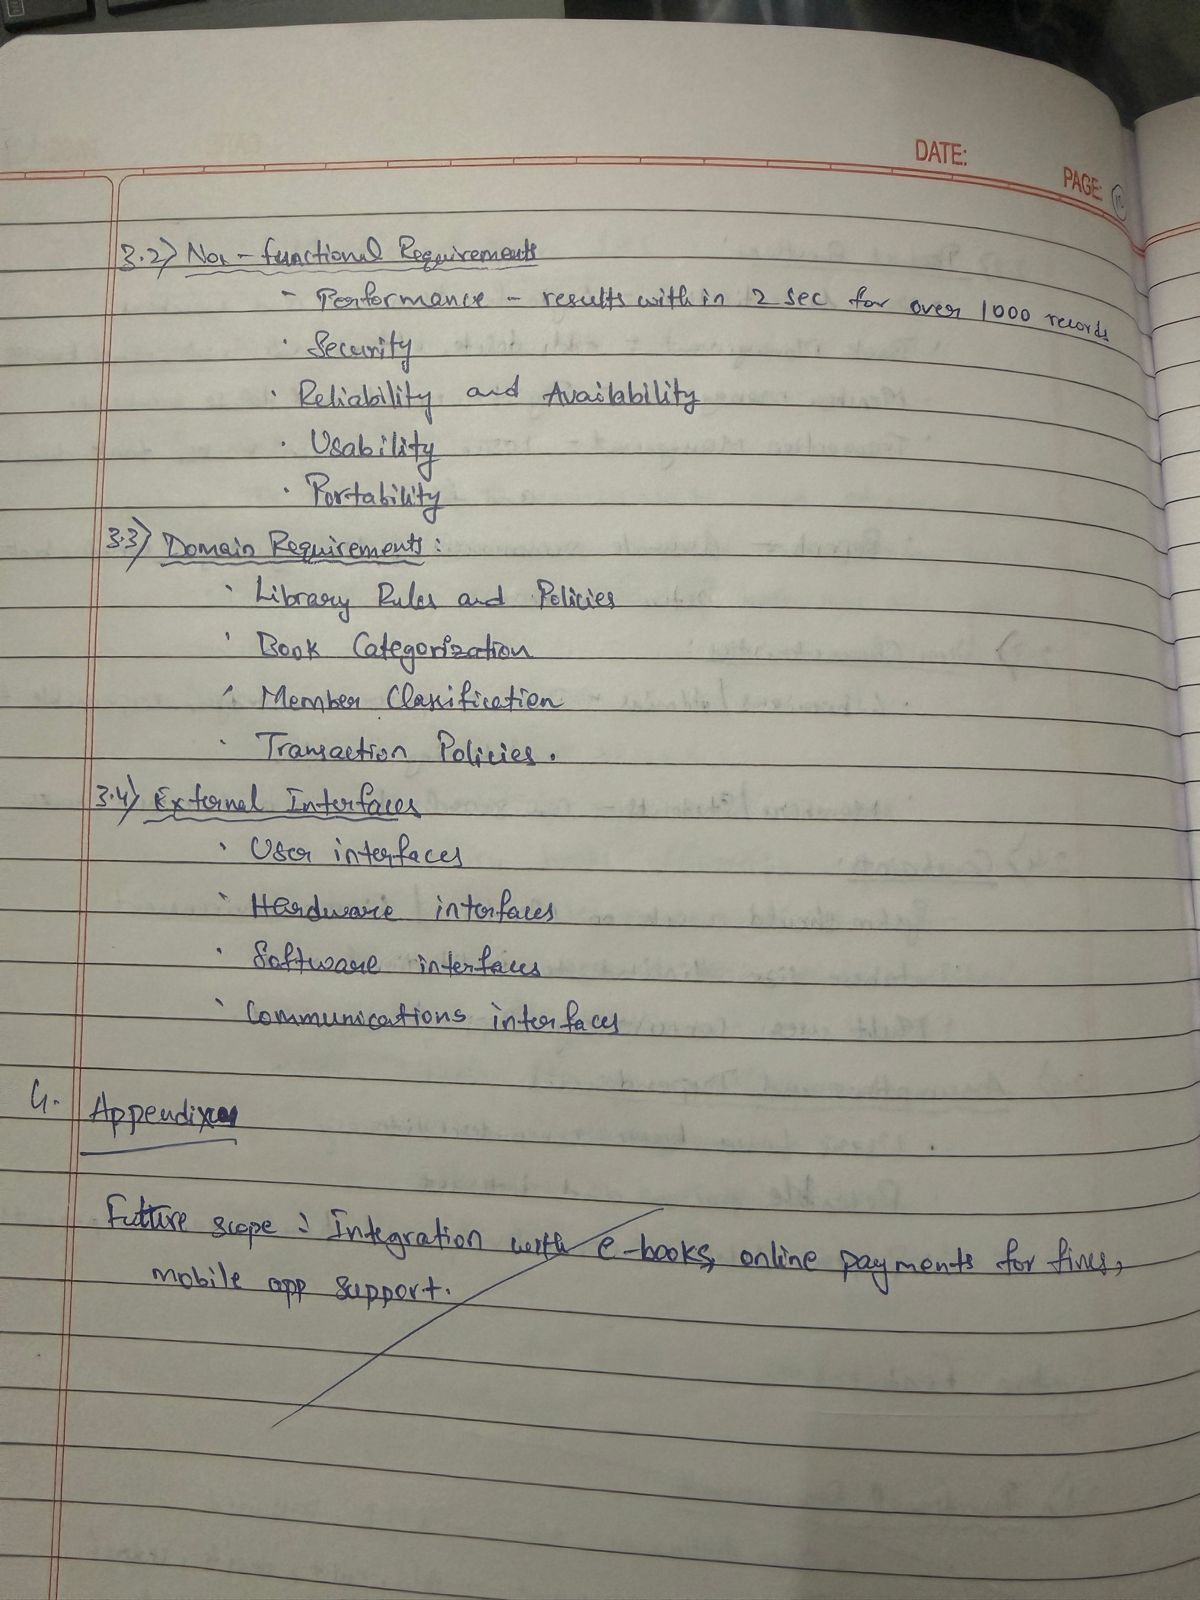 DATE:
PAGE:
3.2) Non-functional Requirements
- Performance - results with in 2 sec for over 1000 records
· Security
· Reliability and Availability
· Usability
· Portability
3.3) Domain Requirements:
· Library Rules and Policies
· Book Categorization
· Member Classification
· Transaction Policies.
3.4) External Interfaces
· User interfaces
· Hardware interfaces
· Software interfaces
· Communications interfaces
4. Appendix
Future scope: Integration with e-books, online payments for fines,
mobile app support.